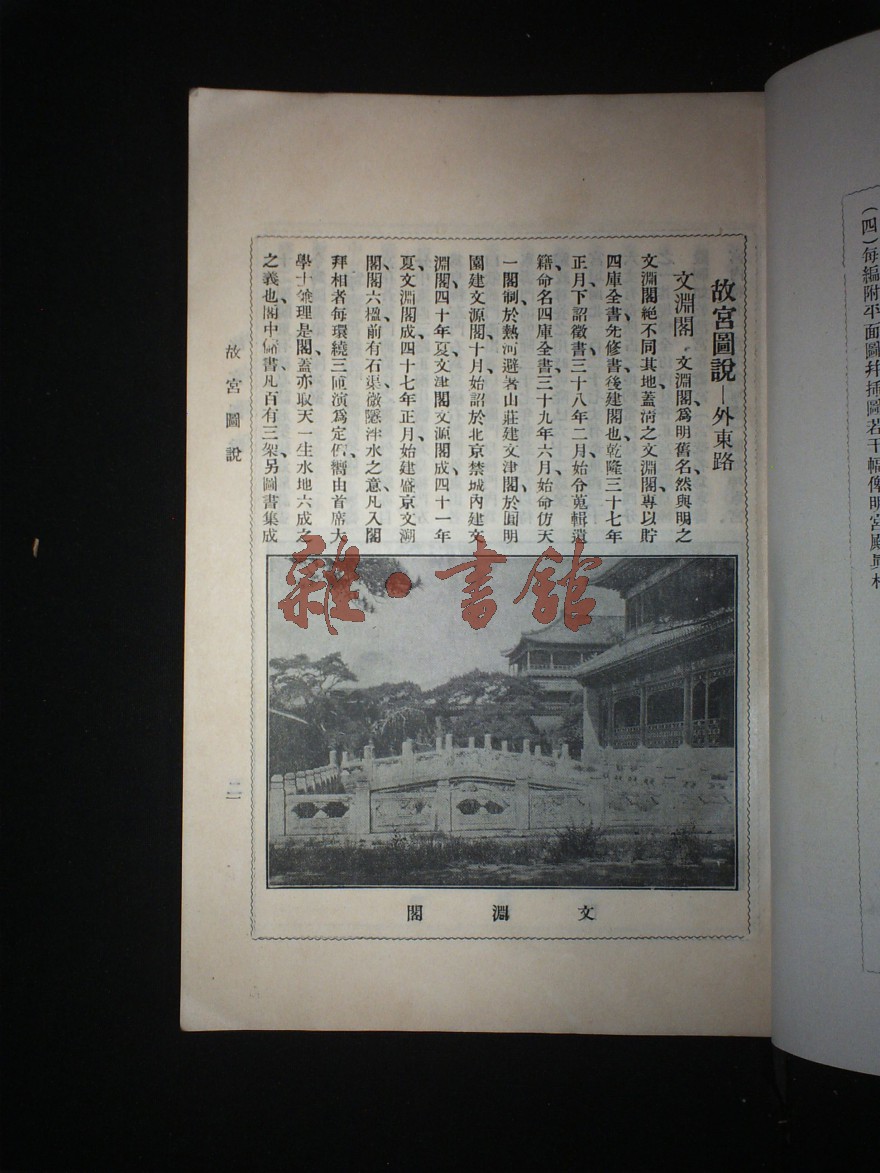 (四)每編附平面圖幷插圖若干幅俾明宮殿
故宮圖說—外東路
文淵閣 文淵閣、爲明舊名、然與明之
文淵閣絕不同、其地蓋淸之文淵閣、專以貯
四庫全書、先修書後建閣也、乾隆三十七年
正月下詔徵書、三十八年二月始分蒐輯遺
籍、命名四庫全書、三十九年六月始命仿天
一閣制、於熱河避暑山莊建文津閣、於圓明
園建文源閣、十月始詔於北京禁城內建文
淵閣、四十年夏、文津閣文源閣成、四十一年
夏、文淵閣成、四十七年正月、始建盛京文溯
閣、閣六楹、前有石渠、微隱泮水之意、凡入閣
拜相者、每環繞三匝、演爲定例、嚮由首席大
學士管理是閣、蓋亦取天一生水地六成之
之義也、閣中儲書、凡百有三架、另圖書集成
文淵閣
故宮圖說
二
雜·書館